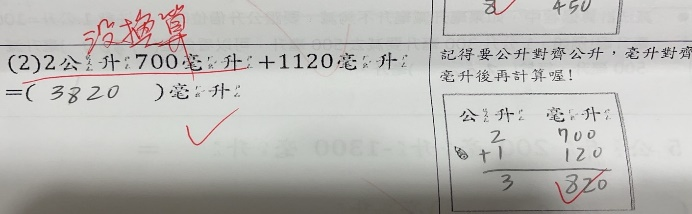 8 450
沒換算
(2)2公升700毫升+1120毫升
=( 3820 )毫升
記得要公升對齊公升，毫升對齊
毫升後再計算喔!
公升 毫升
2 700
+1 120
3 820